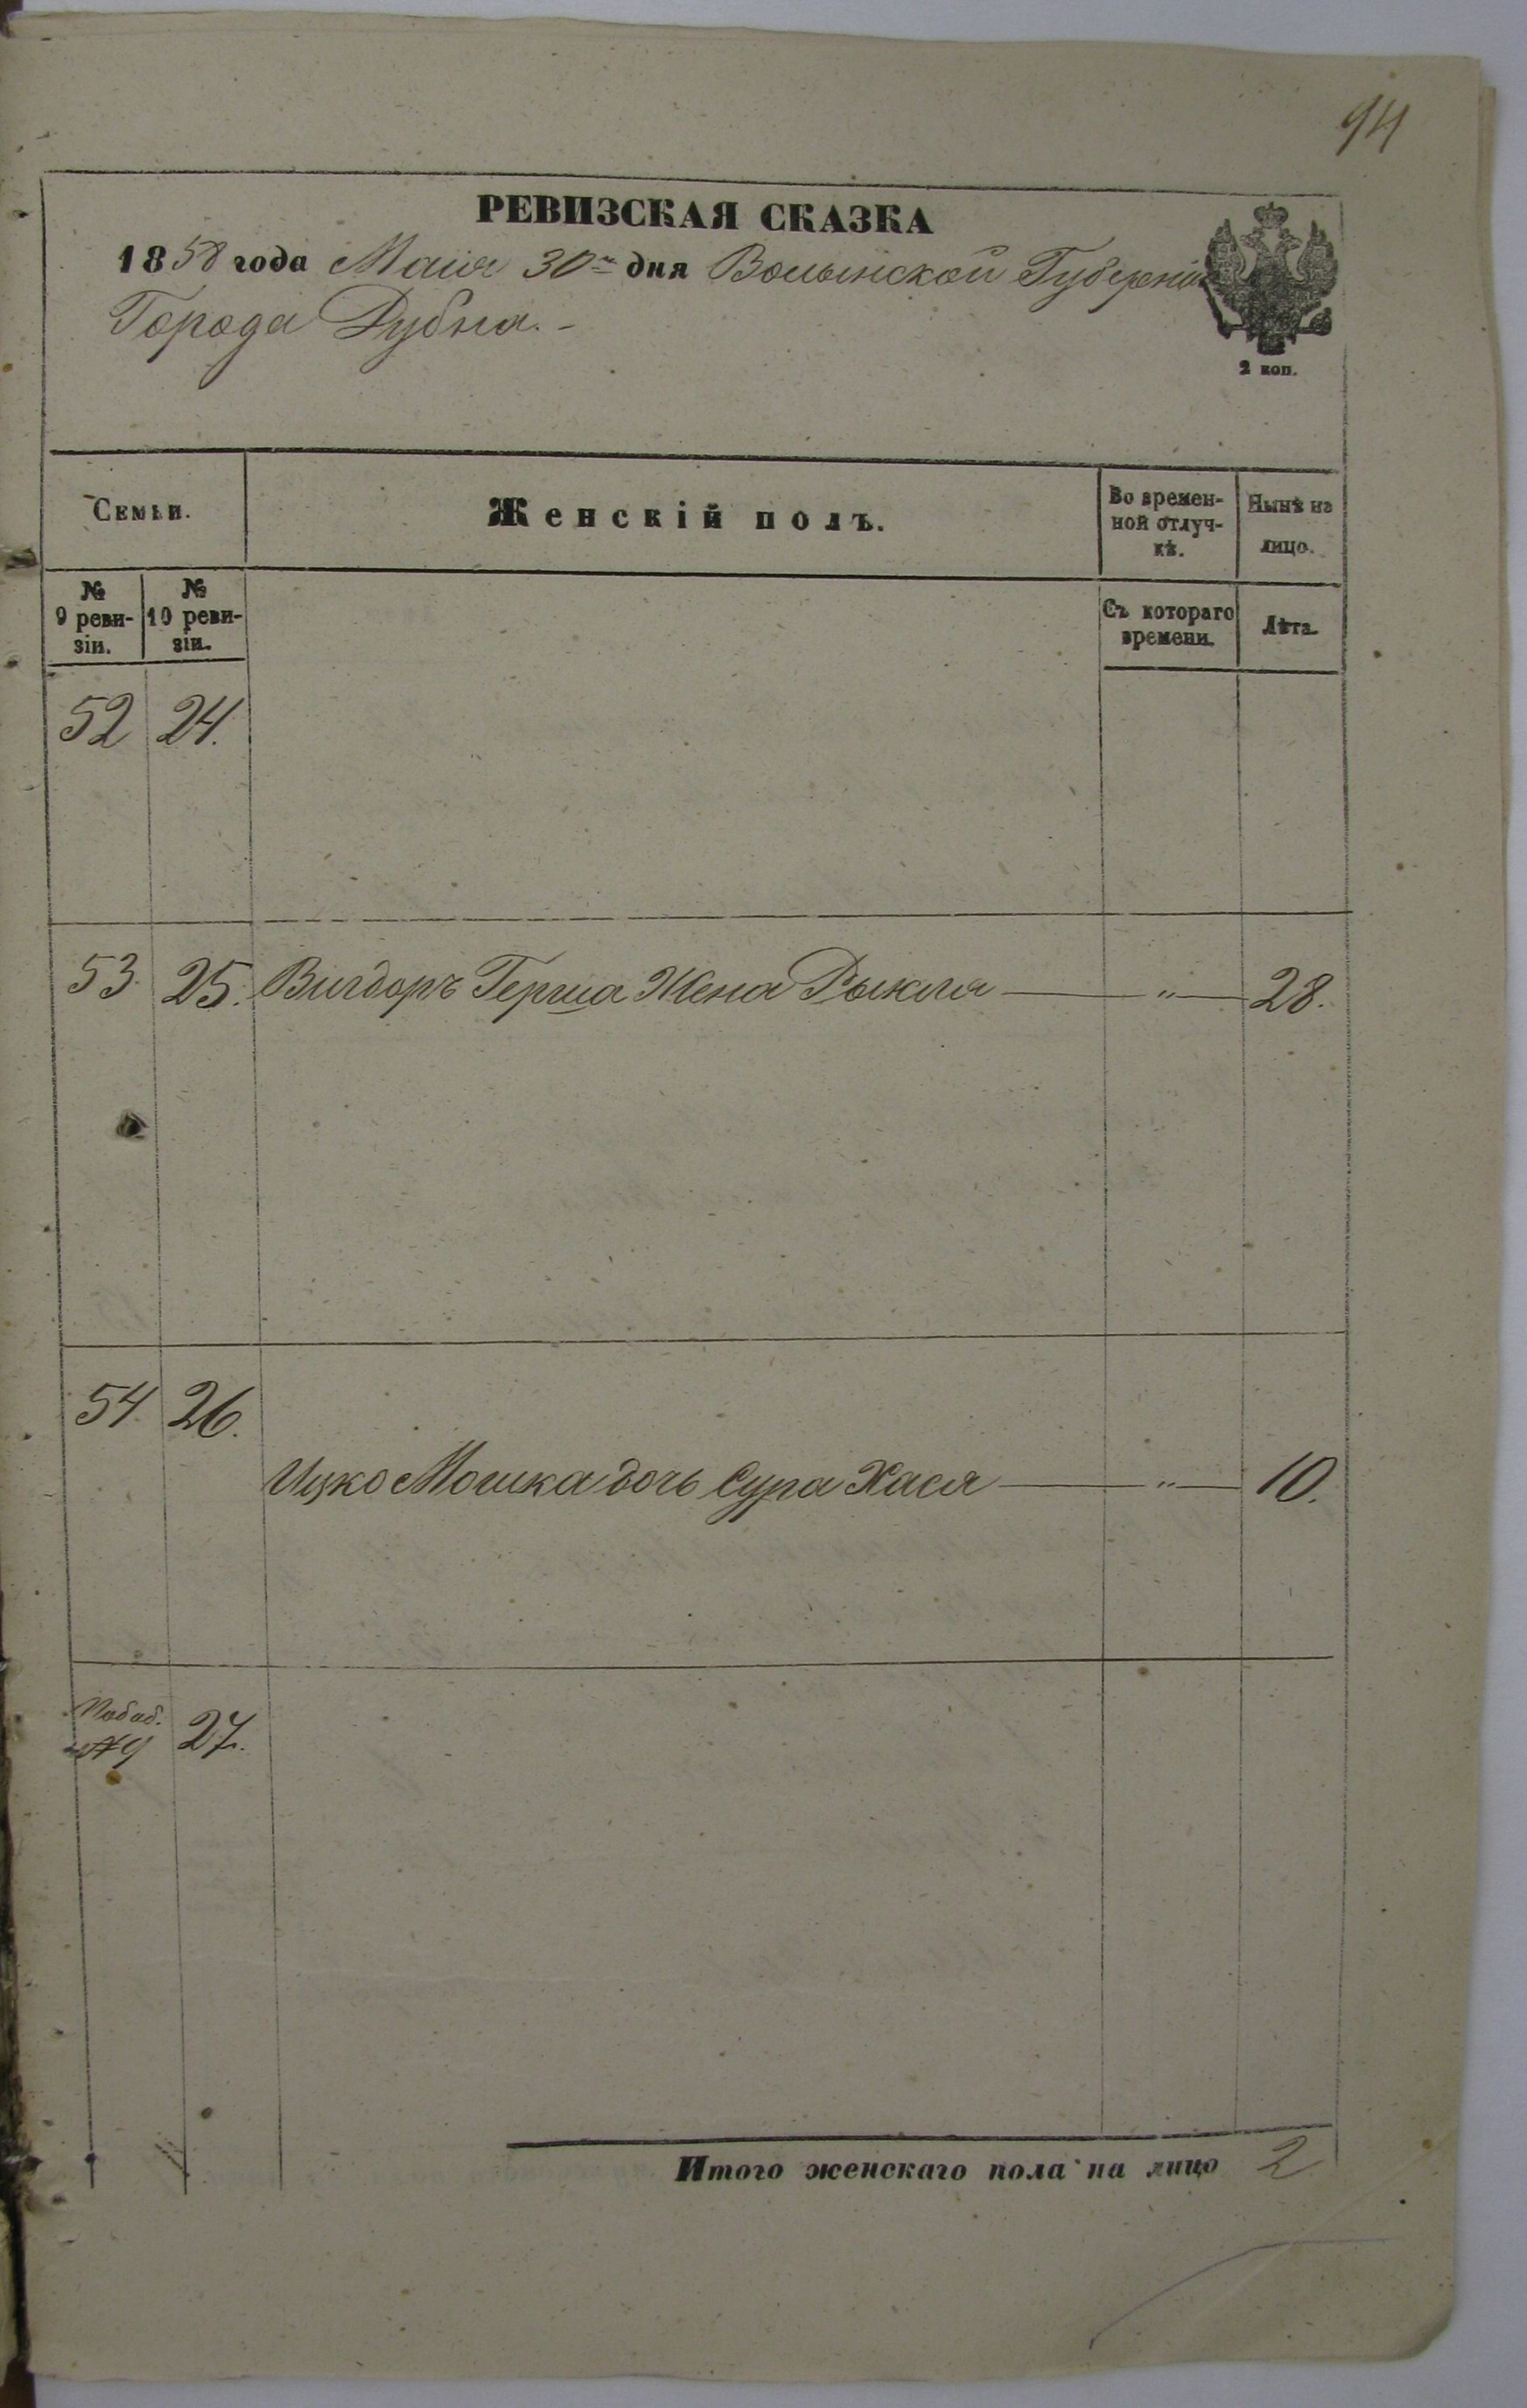 94
РЕВИЗСКАЯ СКАЗКА
1858 года Маия 30го дня Волынской Губерніи
Города Дубна.-
2 коп.
Семьи.
Женскій полъ.
Во времен-
ной отлуч-
кѣ.
Нынѣ на
лицо.
№
9 реви-
зіи.
№
10 реви-
зіи.
Съ котораго
времени.
Лѣта.
52 24.
53. 25. Вигдоръ Герша Жена Рыкля — " — 28.
54. 26.
Ицко Мошка дочь Сура Хася — " — 10.
№ 9 27.
Итого женскаго пола на лицо 2